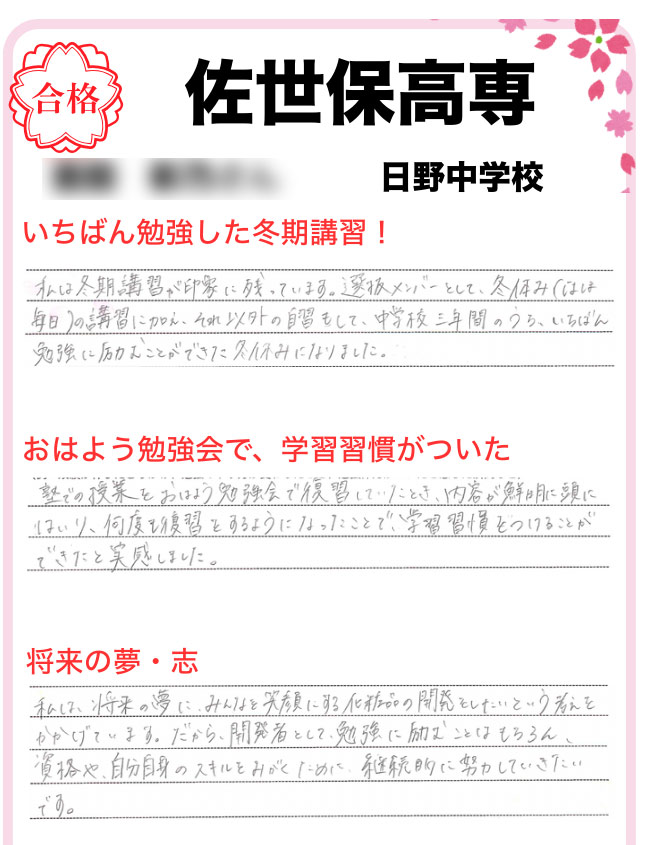 合格
佐世保高専
日野中学校
いちばん勉強した冬期講習！
私は冬期講習が印象に残っています。選抜メンバーとして、冬休み(ほぼ
毎日)の講習に加え、それ以外の自習もして、中学校三年間のうち、いちばん
勉強に励むことができた冬休みになりました。
おはよう勉強会で、学習習慣がついた
塾での授業をおはよう勉強会で復習していたとき、内容が鮮明に頭に
はいり、何度も復習をするようになったことで、学習習慣をつけることが
できたと実感しました。
将来の夢・志
私は、将来の夢に、みんなを笑顔にする化粧品の開発をしたいという考えを
かかげています。だから、開発者として、勉強に励むことはもちろん、
資格や、自分自身のスキルをみがくために、継続的に努力していきたい
です。